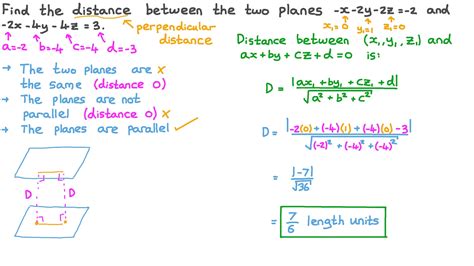 Find the distance between the two planes -x-2y-2z=-2 and
-2x-4y-4z=3.
perpendicular distance
x₁=0 y₁=1 z₁=0
a=-2 b=-4 c=-4 d=-3
→ The two planes are x
the same (distance 0)
→ The planes are not
parallel (distance 0) x
→ The planes are parallel ✓
D D
Distance between (x₁,y₁,z₁) and
ax+by+cz+d=0 is:
D = |ax₁+by₁+cz₁+d| / √(a²+b²+c²)
D = |-2(0)+(-4)(1)+(-4)(0)-3| / √((-2)²+(-4)²+(-4)²)
= |-7| / √36
= 7/6 length units